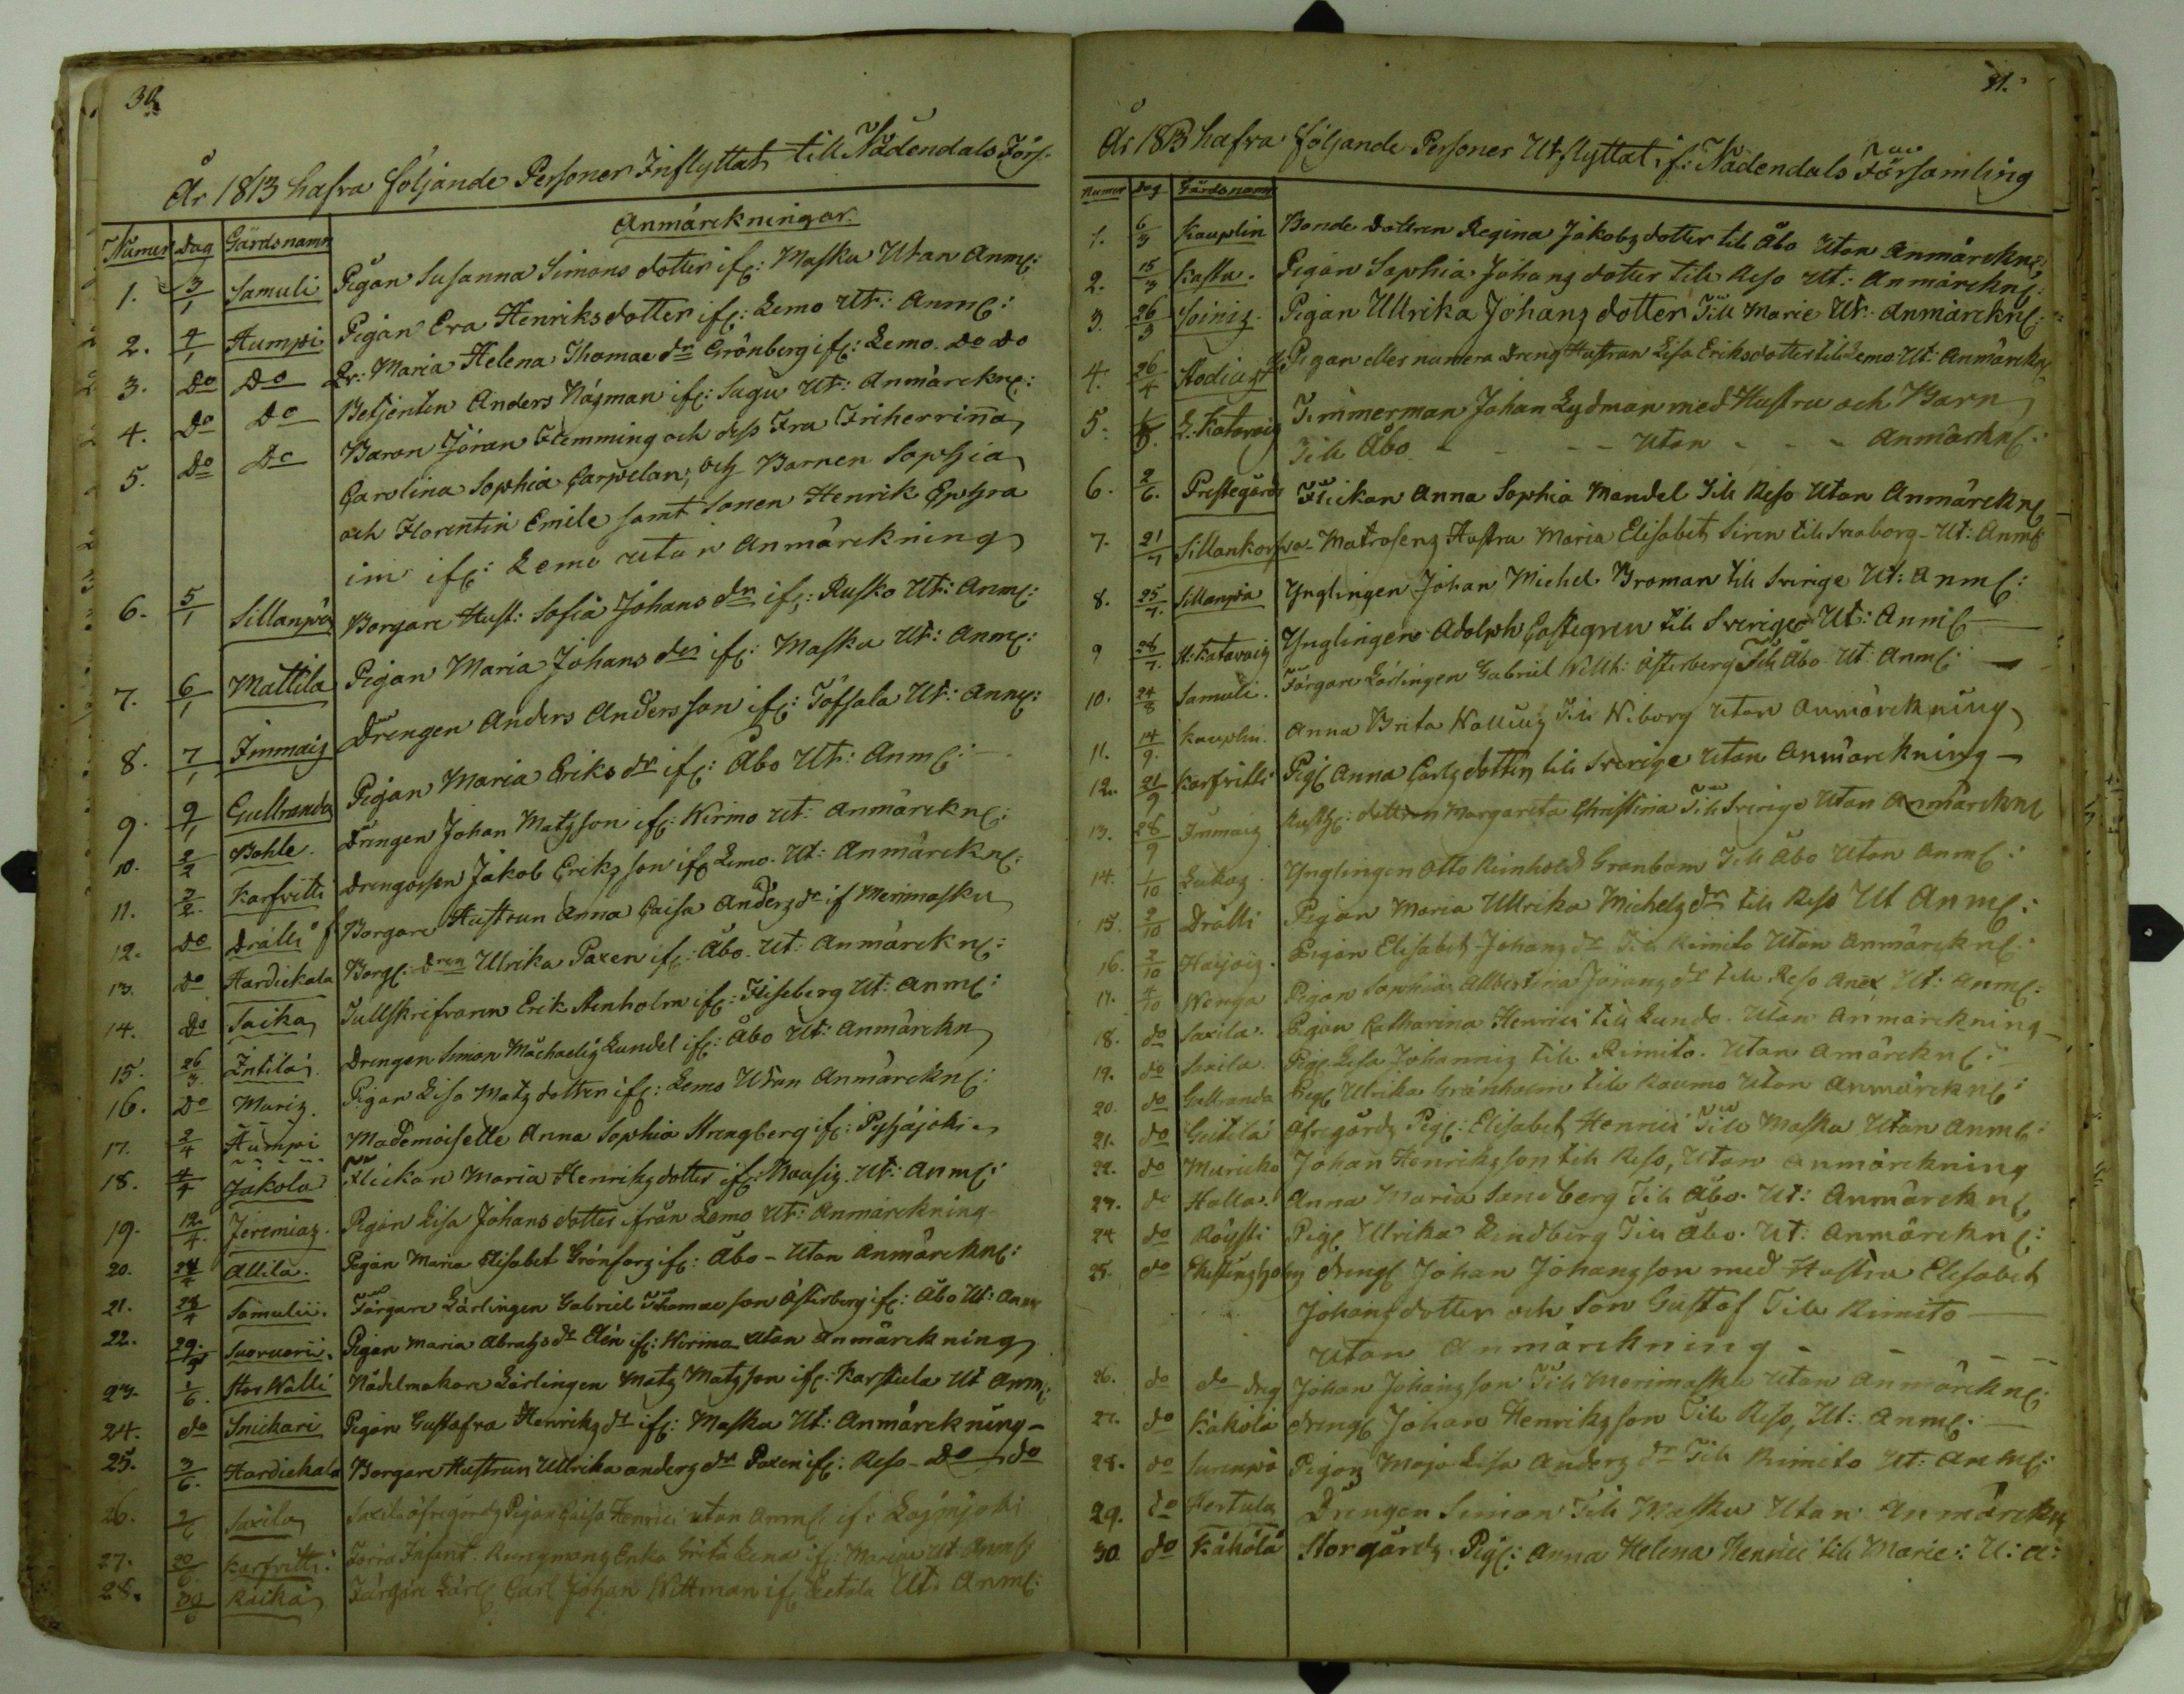 30.
År 1813 hafva följande Personer Inflyttat till Nådendals Förs.
Numer Dag Gårdsnamn Anmärckningar.
1. 3/1 Samuli Pigan Susanna Simons dotter ifr: Masku Utan Anmr:
2. 4/1 Humpi Pigan Eva Henriksdotter ifr: Lemo Ut: Anmr:
3. Do Do Dr: Maria Helena Thomae dr Grönberg ifr: Lemo. Do Do
4. Do Do Betjenten Anders Nägman ifr: Sagu Ut: Anmärckn:
5. Do Do Baron Jöran Flemming och dess Fru Friherrinna
Carolina Sophia Carpelan, och Barnen Sophia
och Florentin Emile samt Sonen Henrik Ephra
im ifr: Lemo utan Anmärckning
6. 5/1 Sillanpä Borgare Hust: Sofia Johans dr ifr: Rusko Ut: Anmr:
7. 6/1 Mattila Pigan Maria Johans dr ifr: Masku Ut: Anmr:
8. 7/1 Immaig Drengen Anders Andersson ifr: Töfsala Ut: Anmr:
9. 9/1 Gullranda Pigan Maria Eriks dr ifr: Åbo Ut: Anmr:
10. 2/2 Bohle. Drengen Johan Matzson ifr: Wirmo Ut: Anmärckn:
11. 2/2. Karfvitti Drengosson Jakob Erikzson ifr Lemo. Ut: Anmärckn:
12. Do Drälli Borgare Hustrun Anna Caisa Anderz dr if Merimasku
13. do Hardickala Borg: dren Ulrika Paxen ifr: Åbo. Ut: Anmärckn:
14. Do Saika Tullskrifvaren Erik Stenholm ifr: Fliseberg Ut: Anmr:
15. 26/3. Intilä Drengen Simon Machaelig Lundel ifr: Åbo Ut: Anmärckn
16. Do Mariz. Pigan Lisa Matz dotter ifr: Lemo Utan Anmärckn:
17. 2/4 Humpi Mademoiselle Anna Sophia Strengberg ifr: Pyhäjoki
18. 4/4 Jakola Flickan Maria Henrikz dotter ifr: Ut: Anmr:
19. 12/4. Jeremiaz. Pigan Lisa Johans dotter ifrån Lemo Ut: Anmärckning
20. 24/4 Allila. Pigan Maria Elisabet Grönforz ifr: Åbo - Utan Anmärckn:
21. 28/4 Samulii. Färgare Lärlingen Gabriel Thomae son Österberg ifr: Åbo Ut: Anmr
22. 29. Suoruorii. Pigan Maria Abrahs dr Elén ifr: Wirmo Utan Anmärckning
23. 1/6. Stor Wälli Nådelmakare Lärlingen Matz Matzson ifr: Karstula Ut Anmr:
24. do Snickari Pigan Gustafva Henrikz dr ifr: Masku Ut: Anmärckning -
25. 3/6. Hardickala Borgare Hustrun Ullrika anderz dr Paxen ifr: Reso - Do do
26. Saxila Saxila öfregårdz Pigan Caisa Henrici utan Anmr ifr:
27. 20 Karfvitti. Enka Grita Lena ifr: Ut Anmr:
28. 30/6 Raikä Färgare Lärl Carl Johan Wittman ifr Letala Ut: Anmr:
31.
År 1813 hafva följande Personer Utflyttat if: Nådendals Församling
Numer Dag Gårdsnamn
1. 6/3 Kauplin Bonde Dottren Regina Jakobz dotter till Åbo Utan Anmärckn:
2. 15/3 Kasku. Pigan Sophia Johanz dotter till Reso Ut: Anmärckn:
3. 26/3 Soiniz. Pigan Ullrika Johanz dotter Till Marie Ut: Anmärckn:
4. 26/4 Pigan eller numera Dreng Hustrun Lisa Eriksdotter till Lemo. Ut: Anmärckn
5. L: Katavaiz Timmerman Johan Lydman med Hustru och Barn
Till Åbo - - - Utan - - - Anmärckn:
6. 2/6. Prestegårds Flickan Anna Sophia Mandel Till Reso Utan Anmärckn
7. 21/7 Sillankorfva - Matrosenz Hustru Maria Elisabet Siren till Sveaborg - Ut: Anmr
8. 25/7. Sillanpä Ynglingen Johan Michel Broman till Sverige Ut: Anmr:
9 28/7. St: Katavaiz Ynglingen Adolph Castegren till Sverige Ut: Anmr
10. 24/8 Samuli. Färgare Lärlingen Gabriel Willh: Österberg Till Åbo. Ut: Anmr:
11. 14/9. Kauplin. Anna Brita Walliuz Till Wiborg utan Anmärckning
12. 21/9 Karfvitti Pig: Anna Carlz dotter till Sverige utan Anmärckning -
13. 28/9 Immaiz dottren Margareta Christina Till Sverige Utan Anmärckn
14. 1/10 Lukaz. Ynglingen Otto Reinhold Granbom Till Åbo Utan Anmr:
15. 2/10 Drälli Pigan Maria Ullrika Michelz dr till Reso Ut Anmr:
16. 2/10 Haijaiz. Pigan Elisabet Johanz dr Till Kimito Utan Anmärckn:
17. 4/10 Wanga Pigan Sophia Albertina Jöranz dr till Reso Anex Ut: Anmr:
18. do Saxila. Pigan Catharina Henrici till Lundo. Utan Anmärckning
19. do Saxila. Pig: Lisa Johanniz till Rimito. Utan Amärckn:
20. do Gullranda Pig: Ulrika Grönholm till Raumo Utan Anmärckn:
21. do Geitila Ofregårdz Pig: Elisabet Henrici Till Masku Utan Anmr:
22. do Muricko Johan Henrikzson till Reso, Utan Anmärckning
23. do Halla. Anna Maria Sandberg Till Åbo. Ut: Anmärckn
24 do Röysti Pig: Ulrika Lindberg Till Åbo. Ut: Anmärckn:
25. do dreng Johan Johanzson med Hustru Elisabet
Johanz dotter och Son Gustaf Till Rimito
utan Anmärckning -
26. do do dreg Johan Johanzson Till Merimasku utan Anmärckn:
27. do Käkölä dreng Johan Henrikzson Till Reso, Ut: Anmr:
28. do Surenpä Pigan Maja Lisa Anderz dr Till Rimito Ut: Anmr:
29. do Hertula Drengen Simon Till Masku Utan Anmärckn
30 do Käkölä Storgårdz. Pig: Anna Helena Henrici till Marie: U: a: